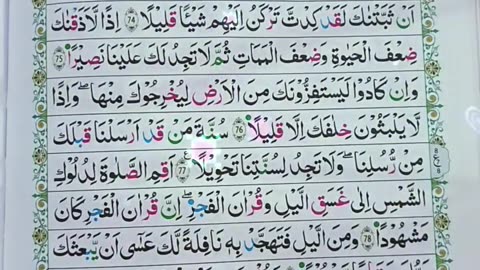 اَنْ ثَبَّتْنٰكَ لَقَدْ كِدْتَّ تَرْكَنُ اِلَيْهِمْ شَيْـًٔا قَلِيْلًا ﴿74﴾ اِذًا لَّاَذَقْنٰكَ
ضِعْفَ الْحَيٰوةِ وَضِعْفَ الْمَمَاتِ ثُمَّ لَا تَجِدُ لَكَ عَلَيْنَا نَصِيْرًا ﴿75﴾
وَاِنْ كَادُوْا لَيَسْتَفِزُّوْنَكَ مِنَ الْاَرْضِ لِيُخْرِجُوْكَ مِنْهَا وَاِذًا
لَّا يَلْبَثُوْنَ خِلٰفَكَ اِلَّا قَلِيْلًا ﴿76﴾ سُنَّةَ مَنْ قَدْ اَرْسَلْنَا قَبْلَكَ
مِنْ رُّسُلِنَا وَلَا تَجِدُ لِسُنَّتِنَا تَحْوِيْلًا ﴿77﴾ اَقِمِ الصَّلٰوةَ لِدُلُوْكِ
الشَّمْسِ اِلٰى غَسَقِ الَّيْلِ وَقُرْاٰنَ الْفَجْرِ اِنَّ قُرْاٰنَ الْفَجْرِ كَانَ
مَشْهُوْدًا ﴿78﴾ وَمِنَ الَّيْلِ فَتَهَجَّدْ بِهٖ نَافِلَةً لَّكَ عَسٰٓى اَنْ يَّبْعَثَكَ